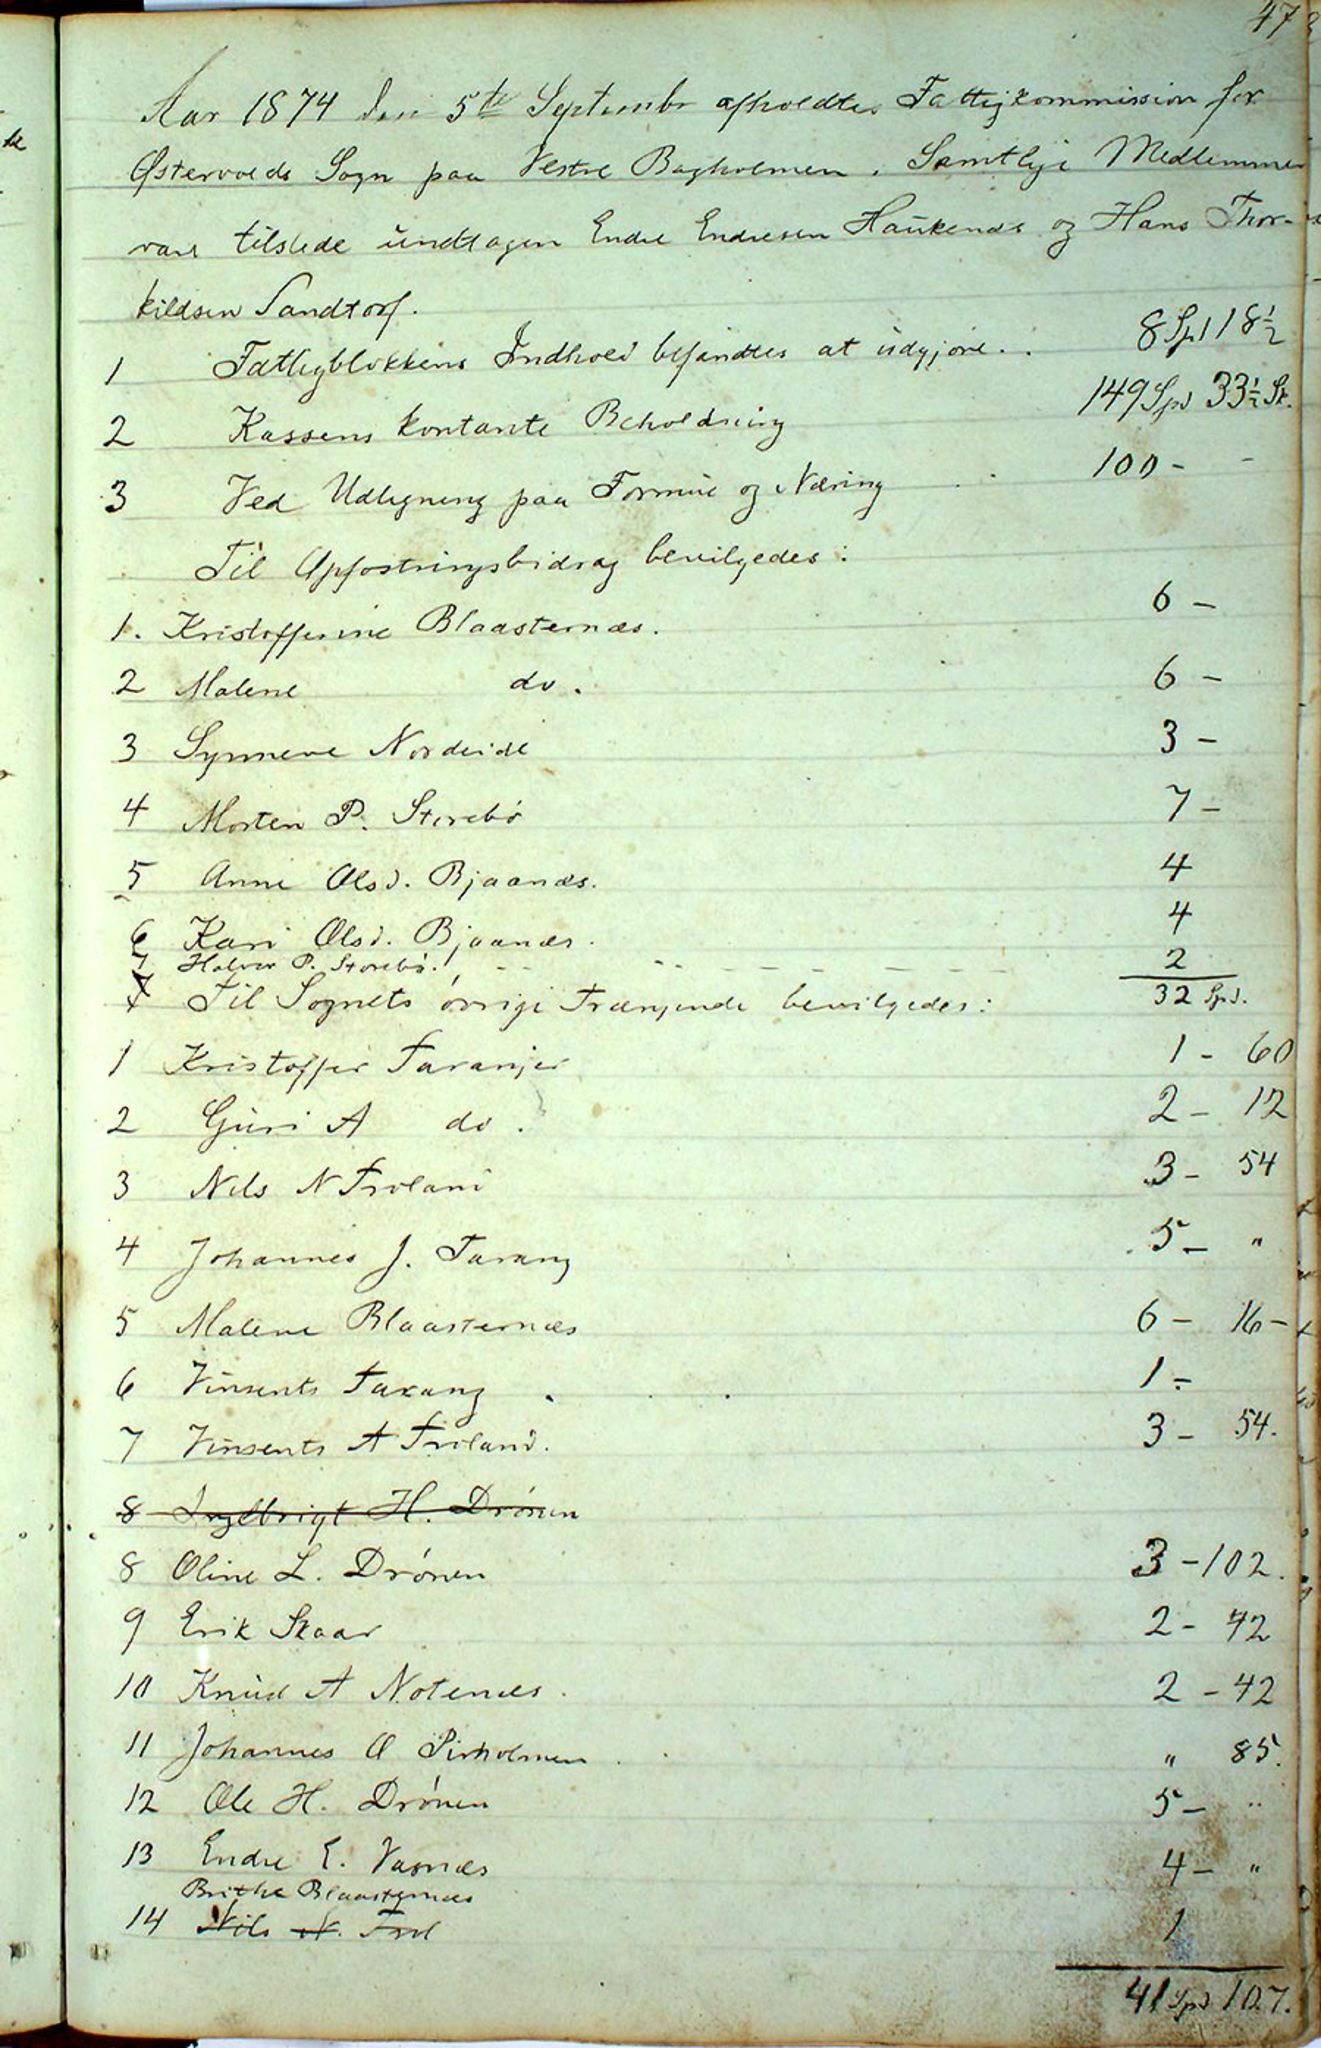 47
Aar 1874 den 5te Septembr afholdtes Fattigkommission for
Østervolds Sogn paa Vestre Bagholmen. Samtlige Medlemmer
vare tilstede undtagen Endre Endresen Haukenæs og Hans Thor-
kildsen Sandtorf.
1 Fattigblokkens Indhold befandtes at udgjøre . . 8 Spd 18½
2 Kassens kontante Beholdning 149 Spd 33½ Sk.
3 Ved Udligning paa Formue og Næring . . 100 - -
Til Opfostringsbidrag bevilgedes:
1. Kristofferine Blaasternæs. 6 -
2 Malene do. 6 -
3 Synneve Nordeide 3 -
4 Morten P. Storebø 7 -
5 Anne Olsd. Bjaanæs. 4
6 Kari Olsd. Bjaanæs. 4
7 Halvor P. Storebø. 2
32 Spd.
Til Sognets øvrige Trængende bevilgedes:
1 Kristoffer Taranger 1 - 60
2 Guri A do. 2 - 12
3 Nils N Troland 3 - 54
4 Johannes J. Tarang 5 - "
5 Malene Blaasternæs 6 - 16 -
6 Vinsents Tarang . 1 -
7 Vinsents A Troland. 3 - 54.
8 Ingebrigt H. Drønen
8 Oline L. Drønen 3 - 102.
9 Erik Skaar 2 - 42
10 Knud A Notenæs. 2 - 42
11 Johannes O Pirholmen . " 85.
12 Ole H. Drønen 5 - "
13 Endre E. Vasnæs 4 - "
Brithe Blaasternæs
14 Nils N. Trol 1
41 Spd 107.